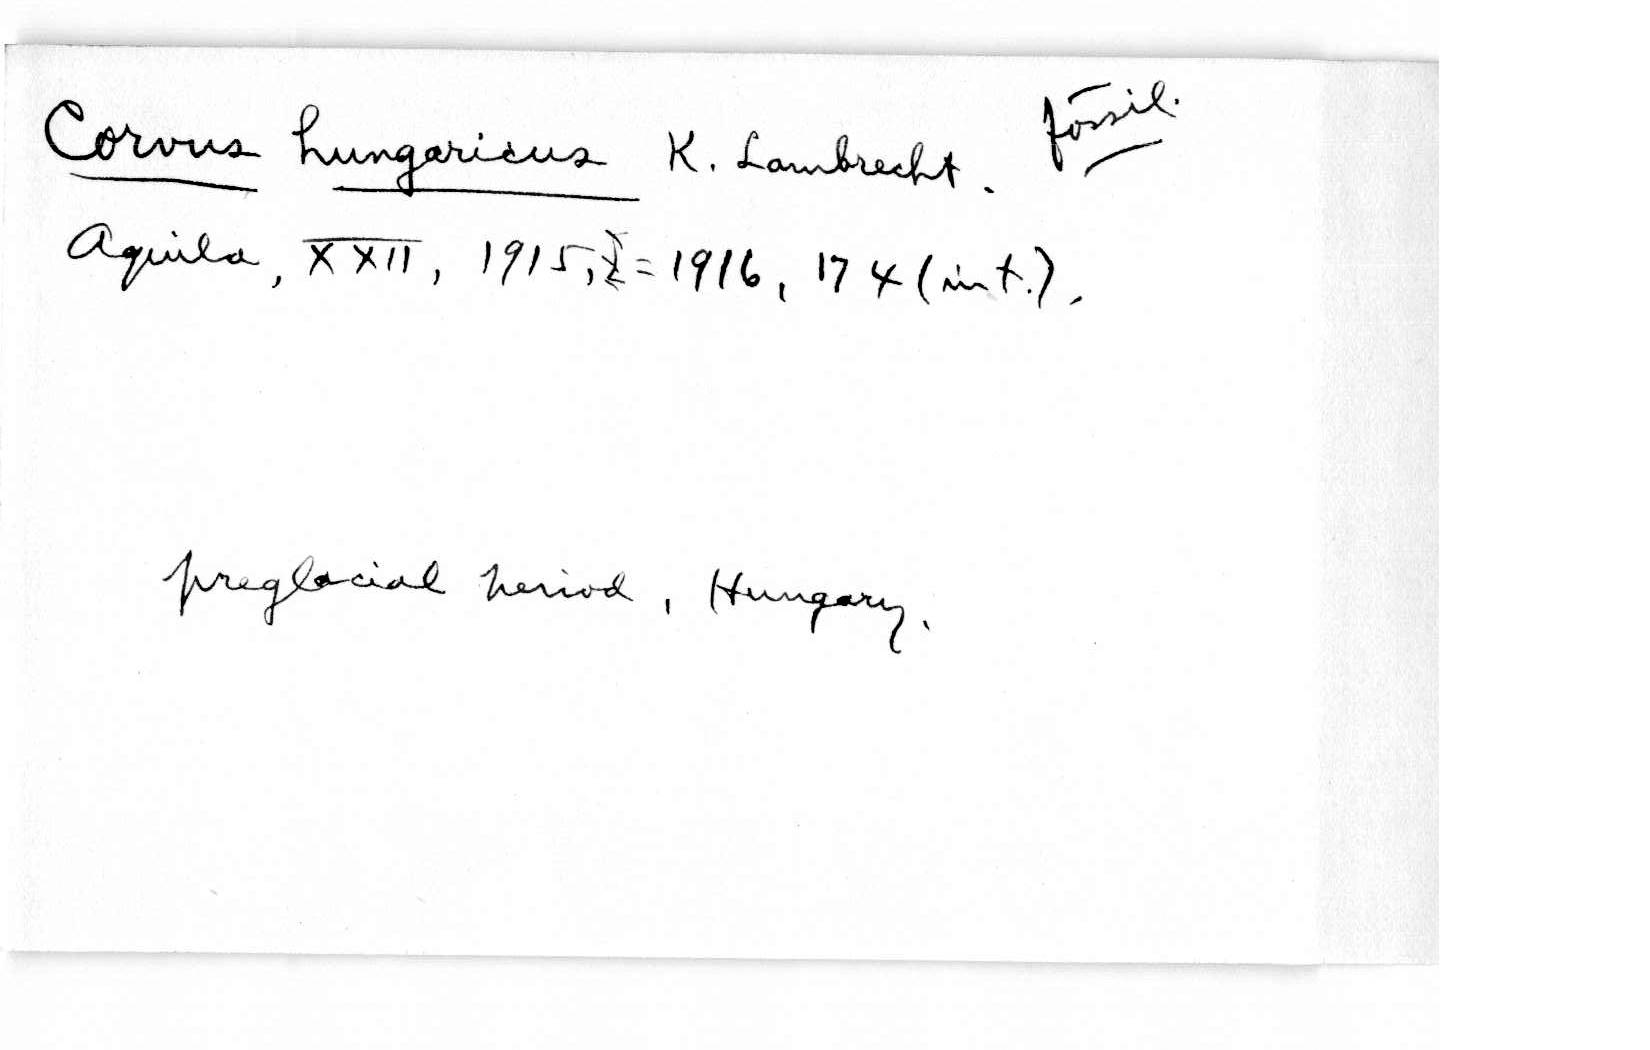 Corvus hungaricus K. Lambrecht. fossil.
Aquila, XXII, 1915, = 1916, 174 (in t.).
preglacial period, Hungary.